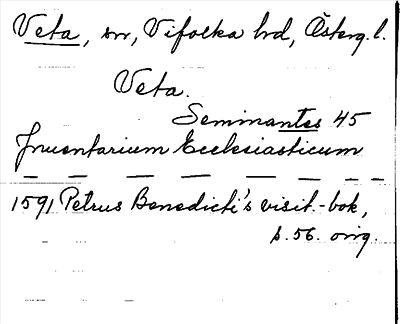 Veta, sn, Vifolka hd, Österg. l.
Veta.
Seminantes 45
Inuentarium Ecclesiasticum
1591 Petrus Benedicti's visit.-bok,
s. 56. orig.